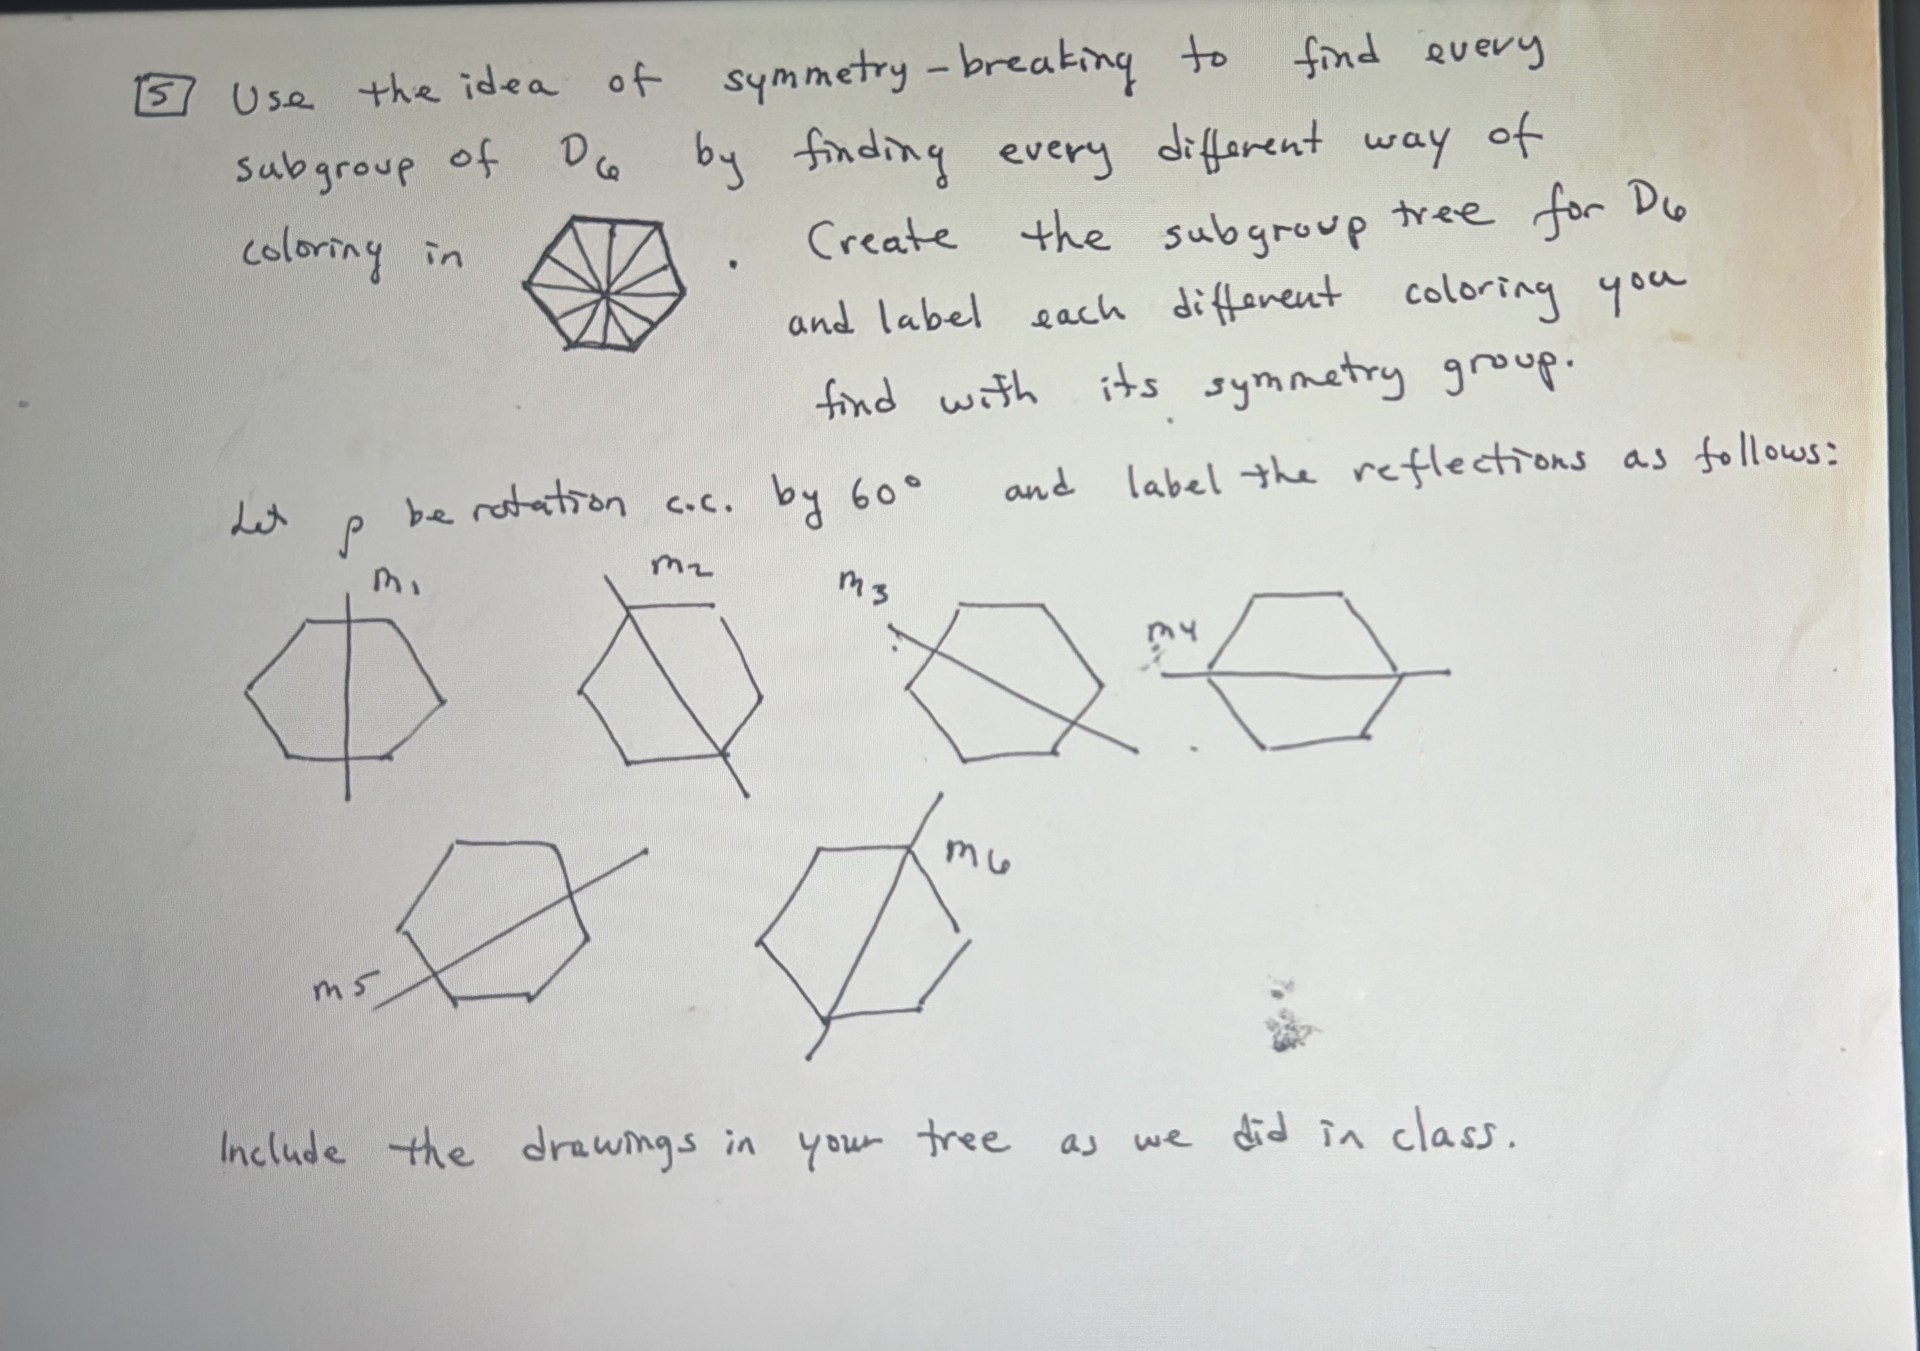 5 Use the idea of symmetry-breaking to find every
subgroup of D6 by finding every different way of
coloring in . Create the subgroup tree for D6
and label each different coloring you
find with its symmetry group.
Let ρ be rotation c.c. by 60° and label the reflections as follows:
m1 m2 m3 m4
m5 m6
Include the drawings in your tree as we did in class.